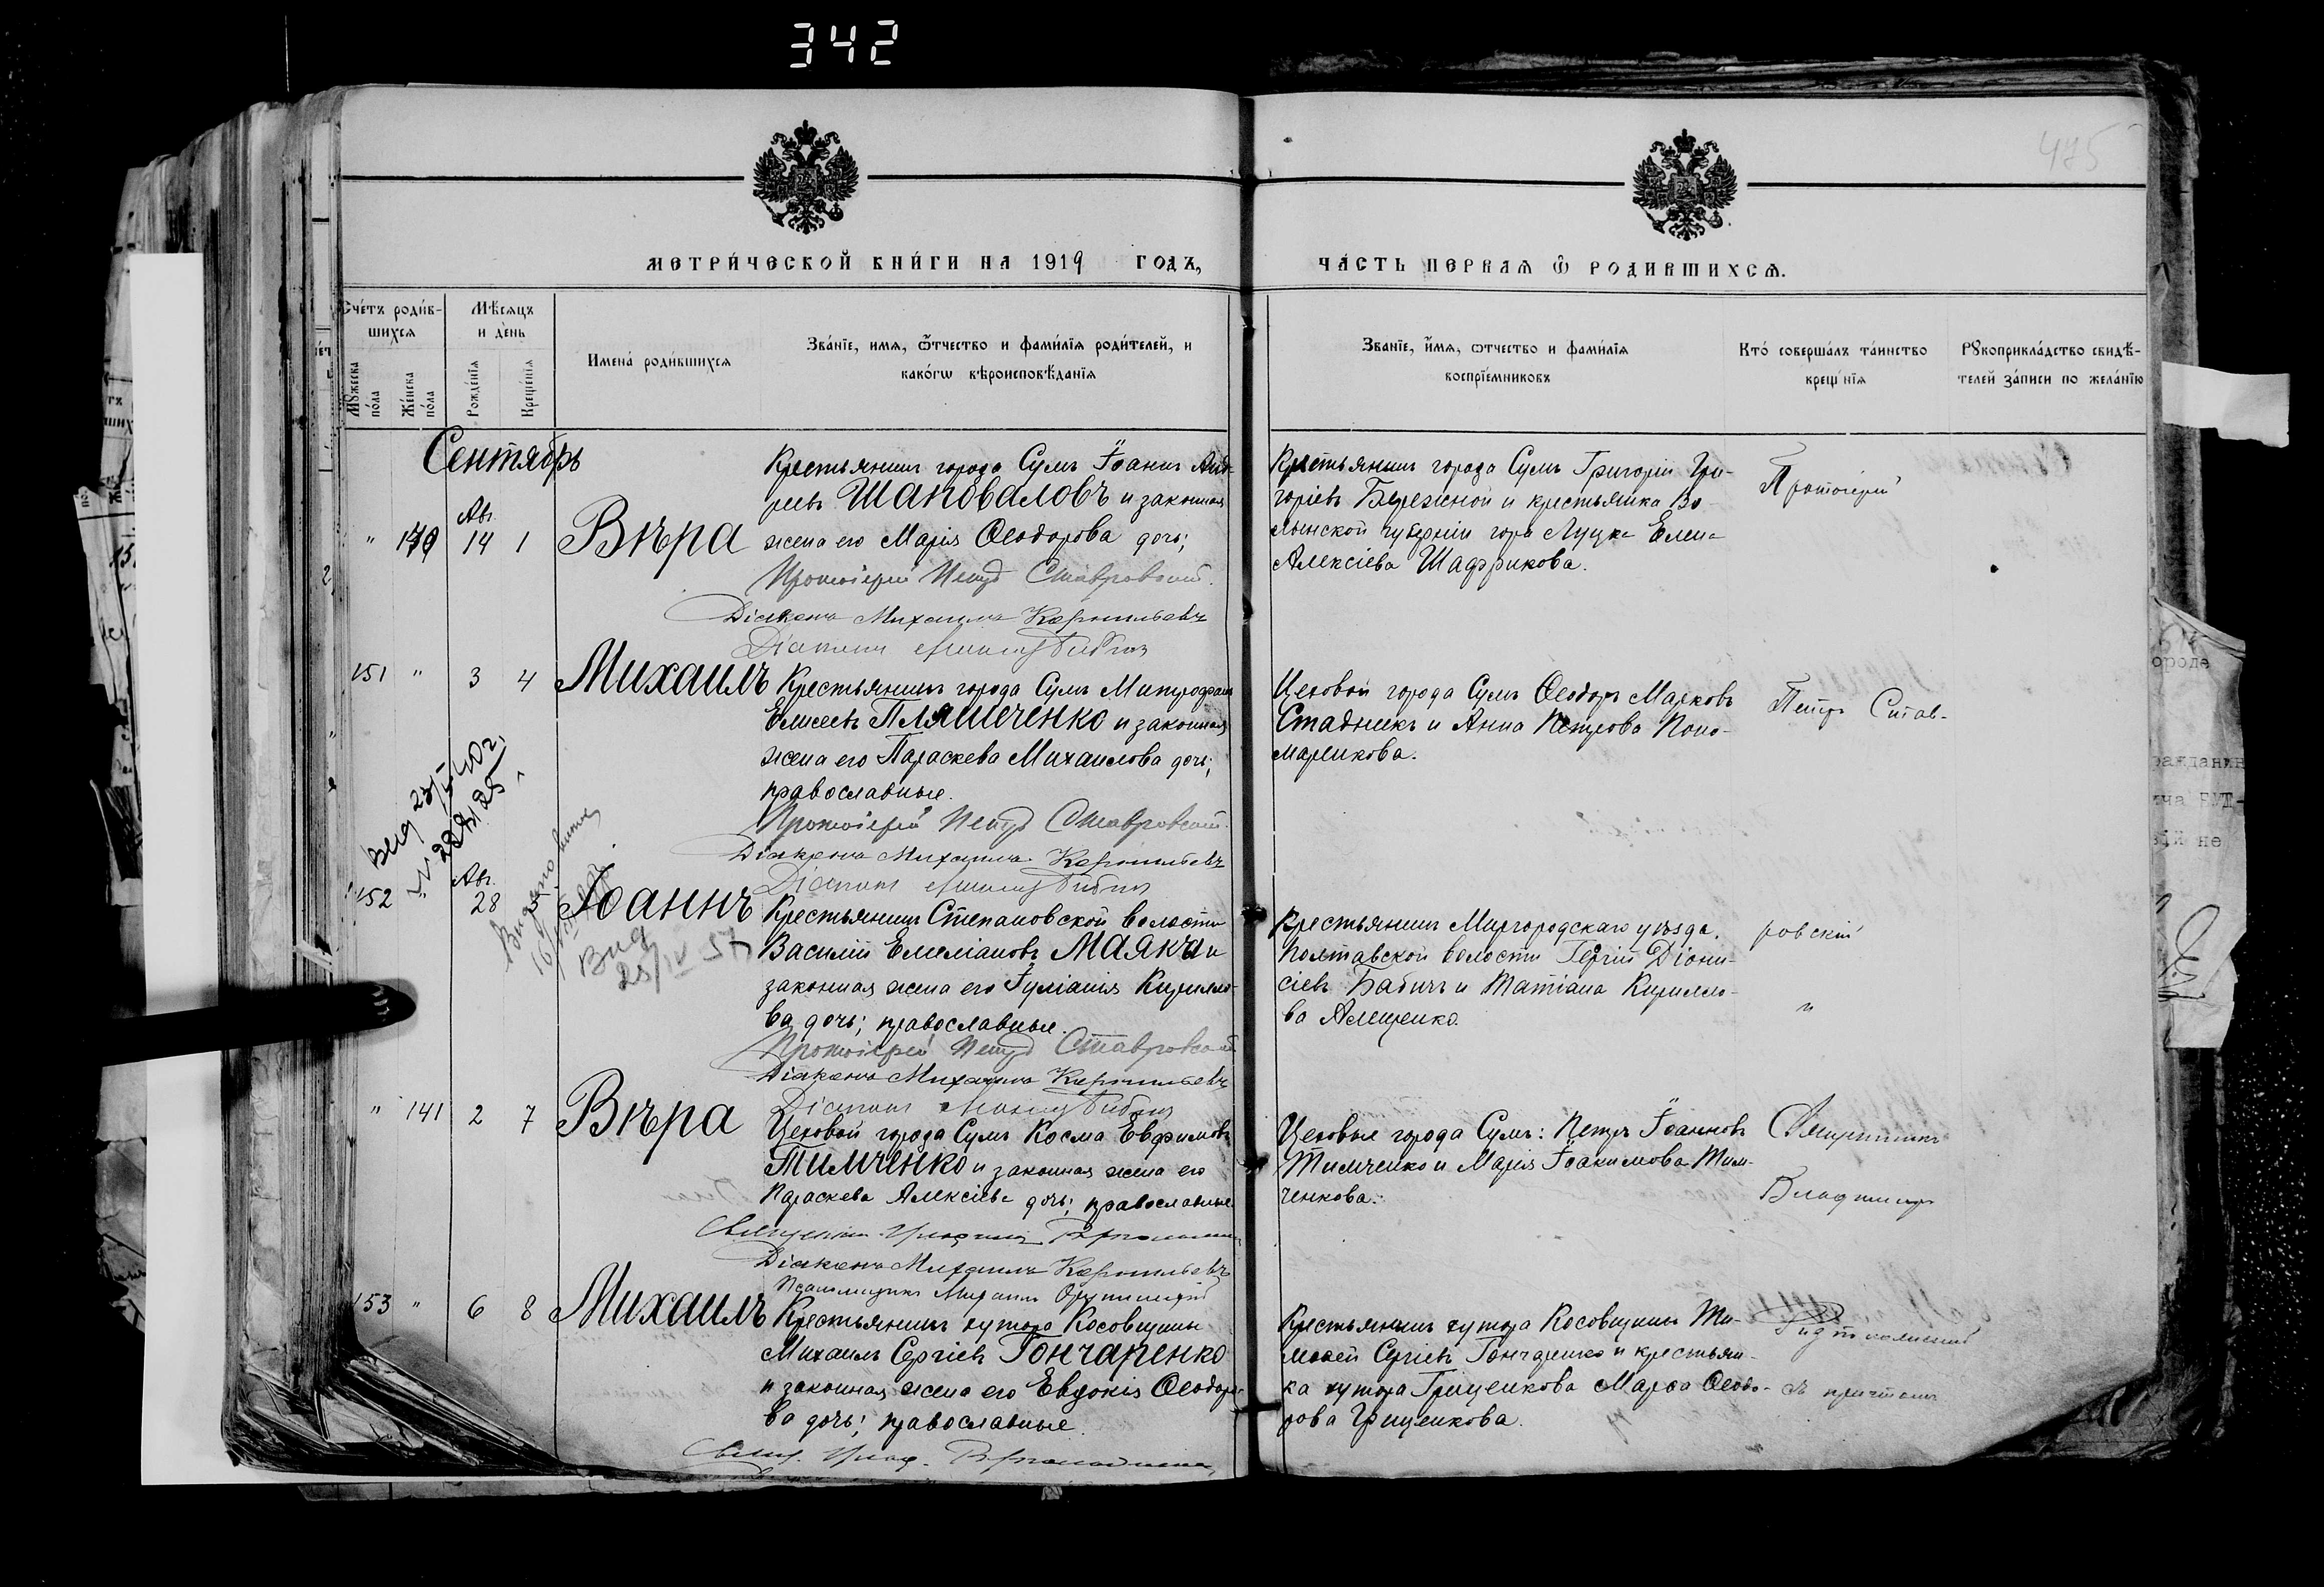 342
475
МЕТРИ́ЧЕСКОЙ КНИ́ГИ НА 1919 ГОДЪ,
ЧА́СТЬ ПЕРВАЯ Ѡ РОДИВШИХСѦ.
Сче́тъ роди́в-
шихсѧ
Мꙋ́жеска по́ла
Же́нска по́ла
Мѣ́сѧцъ
и де́нь
Рожде́нїѧ
Креще́нїѧ
Имена́ роди́вшихсѧ
Зва́нїе, имѧ, ѿтчество и фами́лїѧ роди́телей, и
како́гѡ вѣроисповѣ́данїѧ
Зва́нїе, и́мѧ, ѡтчество и фами́лїѧ
воспрїе́мниковъ
Кто́ соверша́лъ та́инство
креще́нїѧ
Рꙋкоприкла́дство свидѣ́-
телей за́писи по жела́нїю
Сентябрь
" 140 Авг. 14 1 Вѣра
Крестьянинъ города Сумъ Іоаннъ Анд-
реевъ Шаповаловъ и законная
жена его Марія Ѳеодорова дочь;
Протоіерей Петръ Ставровскій.
Діаконъ Михаилъ Корнильевъ
Діаконъ
Крестьянинъ города Сумъ Григорій Гри-
горіевъ Бережной и крестьянка Во-
лынской губерніи гор. Луцка Елена
Алексіева Шафрикова.
Протоіерей
151 " 3 4 Михаилъ
Крестьянинъ города Сумъ Митрофанъ
Елисеевъ Пляшеченко и законная
жена его Параскева Михаилова дочь;
православные.
Протоіерей Петръ Ставровскій
Діаконъ Михаилъ Корнильевъ
Діаконъ
Цеховой города Сумъ Ѳеодоръ Марковъ
Стадникъ и Анна Петрова Поно-
маренкова.
Петръ Став-
152 " Авг. 28 Іоаннъ
Выдано
Выд
25/IV 57
Крестьянинъ Степановской волости
Василій Емеліановъ Маякъ и
законная жена его Іуліанія Кирилло-
ва дочь; православные.
Протоіерей Петръ Ставровскій
Діаконъ Михаилъ Корнильевъ
Діаконъ
Крестьянинъ Миргородскаго уѣзда,
Полтавской волости Георгій Діони-
сіевъ Бабичъ и Татіана Кирилло-
ва Алещенко.
ровскій
"
" 141 2 7 Вѣра
Цеховой города Сумъ Косма Евфимовъ
Тимченко и законная жена его
Параскева Алексіева дочь; православные.
Діаконъ Михаилъ Корнильевъ
Псаломщикъ
Цеховые города Сумъ: Петръ Іоанновъ
Тимченко и Марія Іоакимова Тим-
ченкова.
Священникъ
Владимиръ
153 " 6 8 Михаилъ
Крестьянинъ хутора Косовщины
Михаилъ Сергіевъ Гончаренко
и законная жена его Евдокія Ѳеодоро-
ва дочь; православные.
Крестьянинъ хутора Косовщины Ти-
моѳей Сергіевъ Гончаренко и крестьян-
ка хутора Грищенкова Марѳа Ѳеодо-
рова Грищенкова.
съ причтомъ
ороде
не